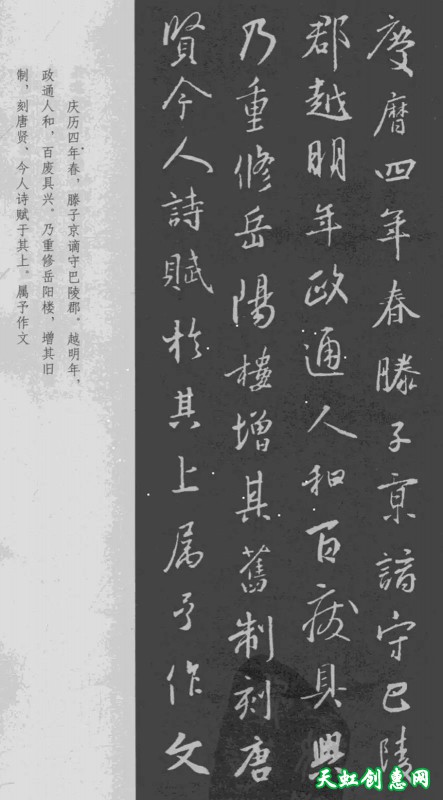 慶曆四年春滕子京謫守巴陵
郡越明年政通人和百廢具興
乃重修岳陽樓增其舊制刻唐
賢今人詩賦於其上属予作文
庆历四年春，滕子京谪守巴陵郡。越明年，
政通人和，百废具兴。乃重修岳阳楼，增其旧
制，刻唐贤、今人诗赋于其上。属予作文
天虹创惠网